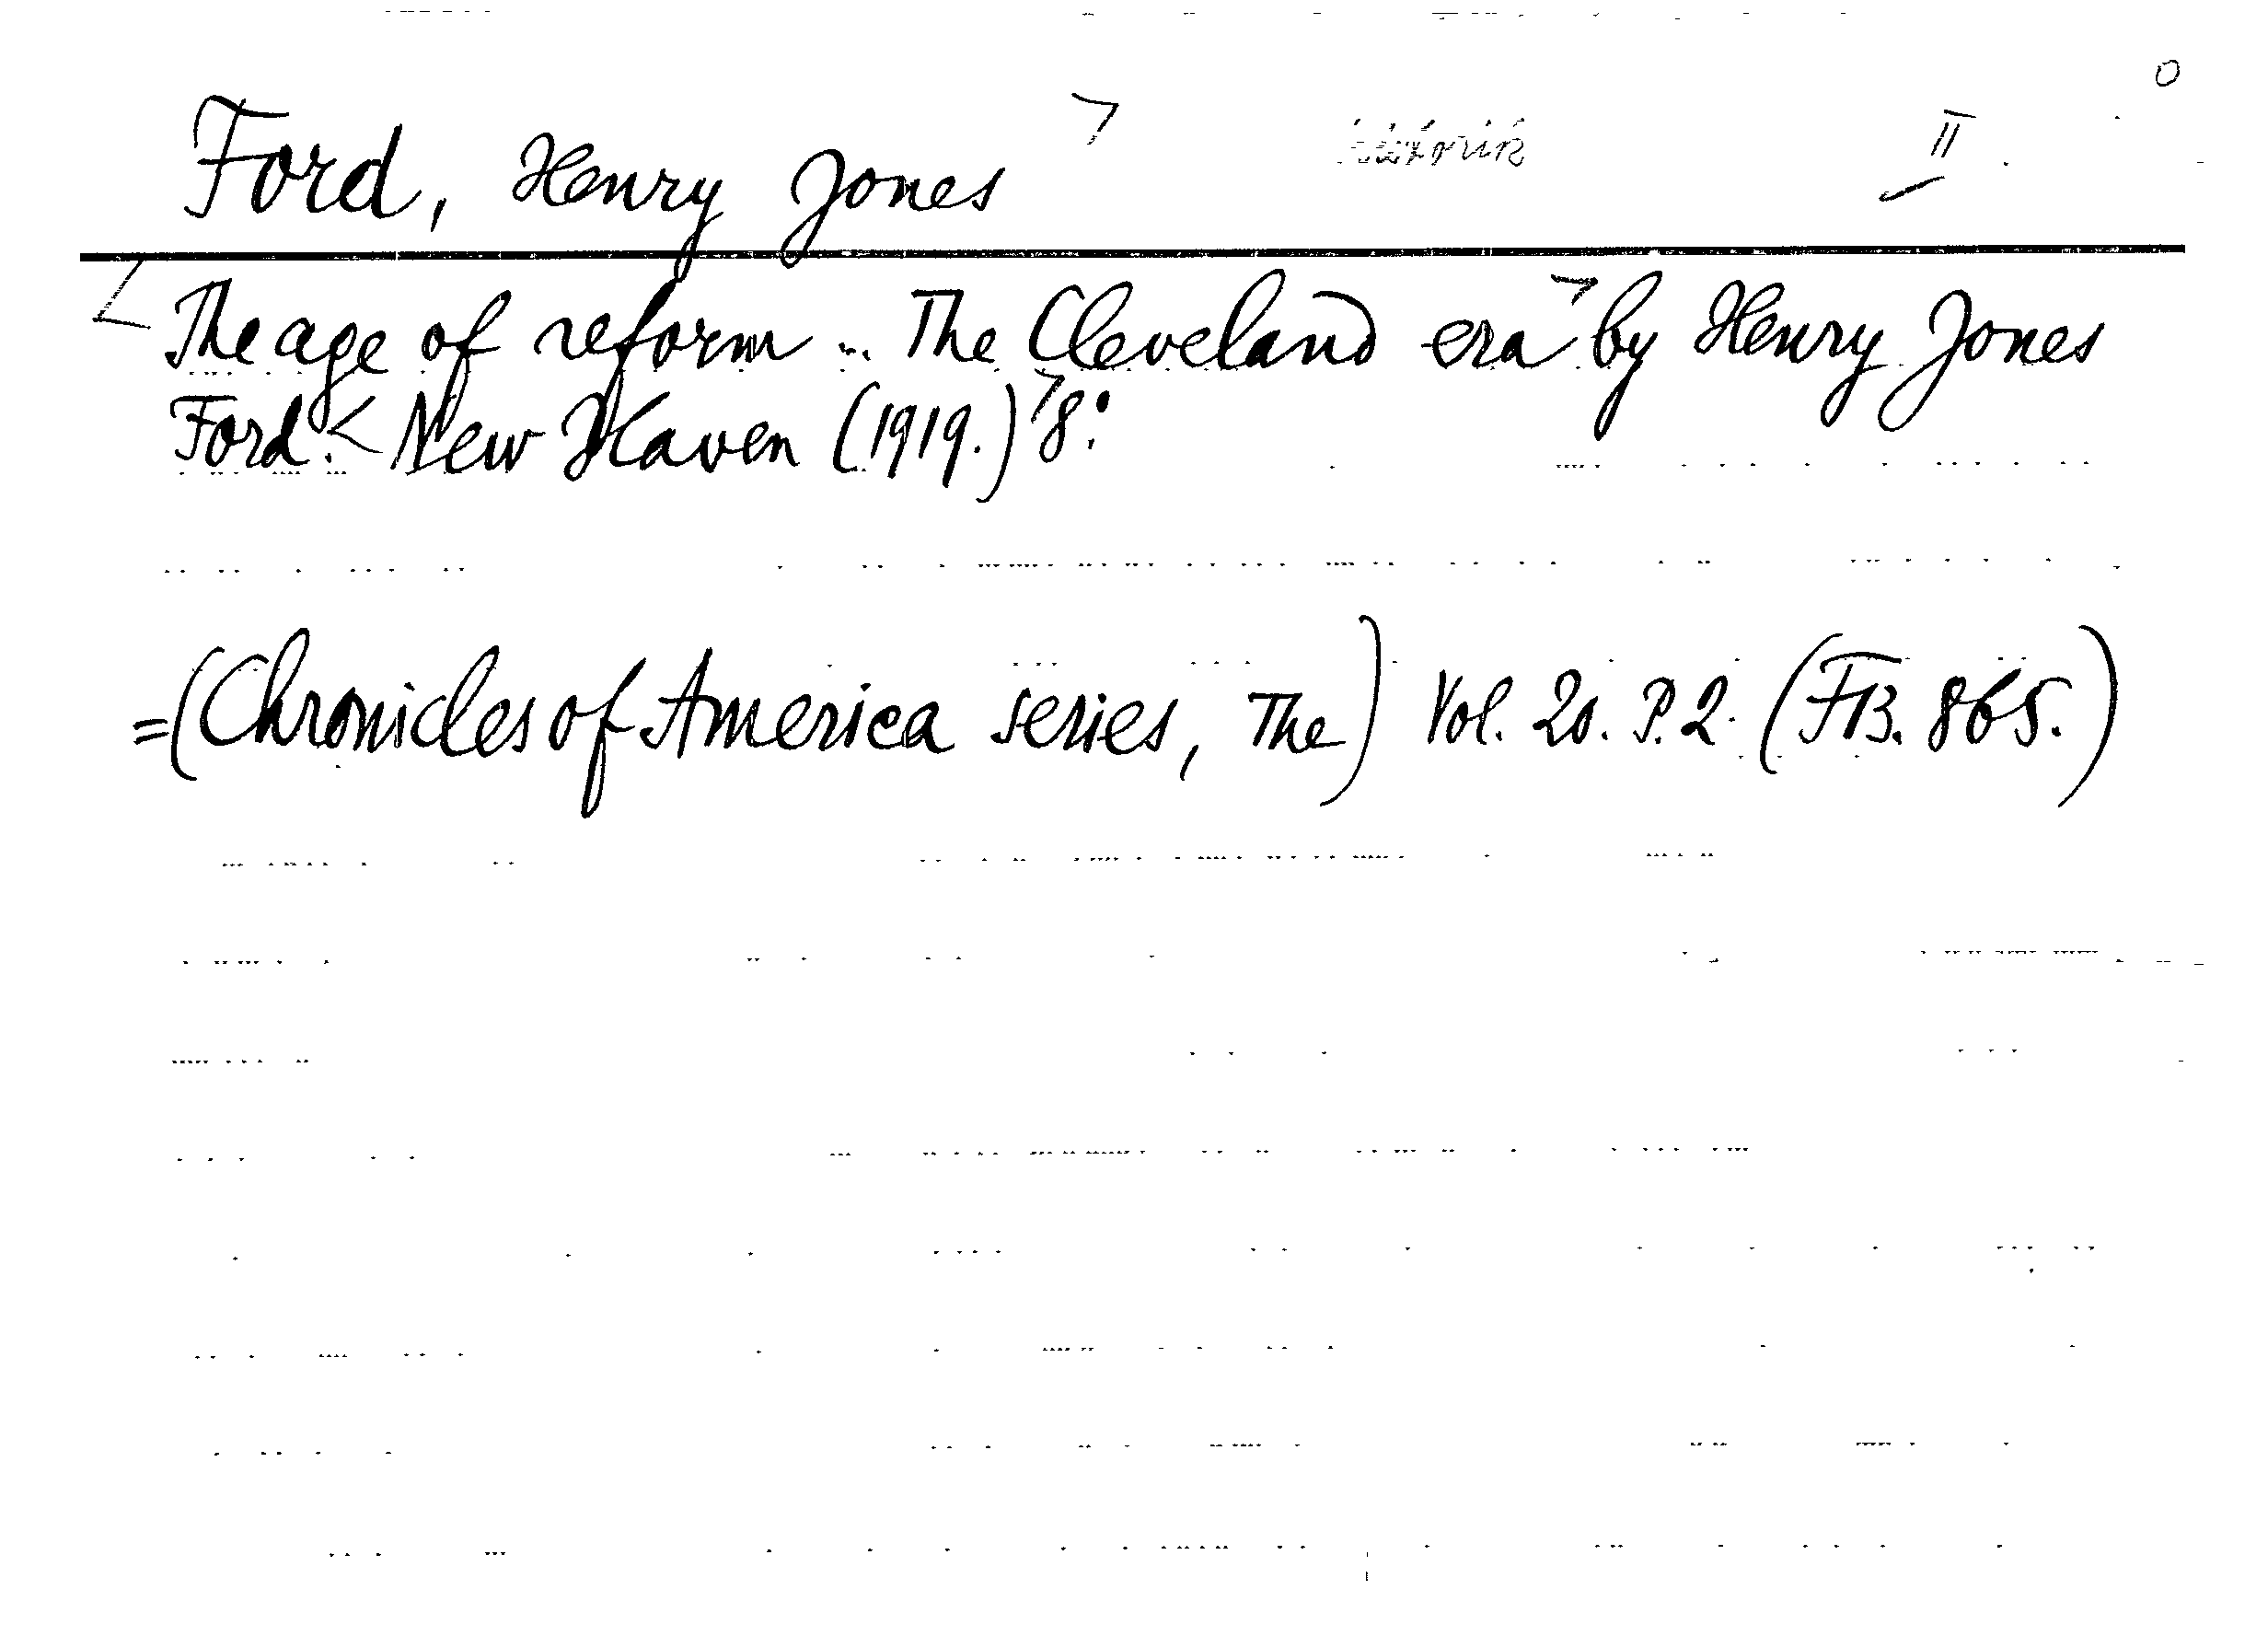 Ford, Henry Jones II
The age of reform ... The Cleveland era by Henry Jones
Ford. New Haven (1919.) 8°.
=(Chronicles of America series, The) Vol. 20. P. 2. (FB. 865.)